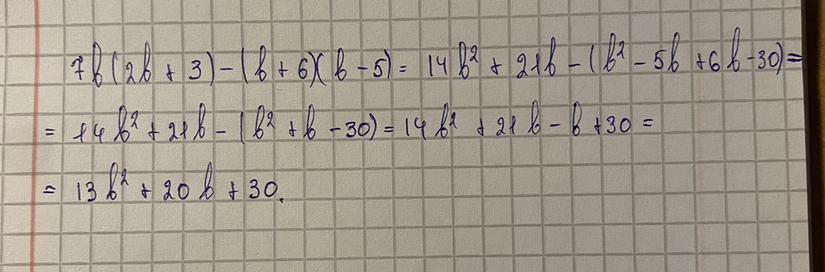 7b(2b + 3) - (b + 6)(b - 5) = 14b² + 21b - (b² - 5b + 6b - 30) =
= 14b² + 21b - (b² + b - 30) = 14b² + 21b - b + 30 =
= 13b² + 20b + 30.